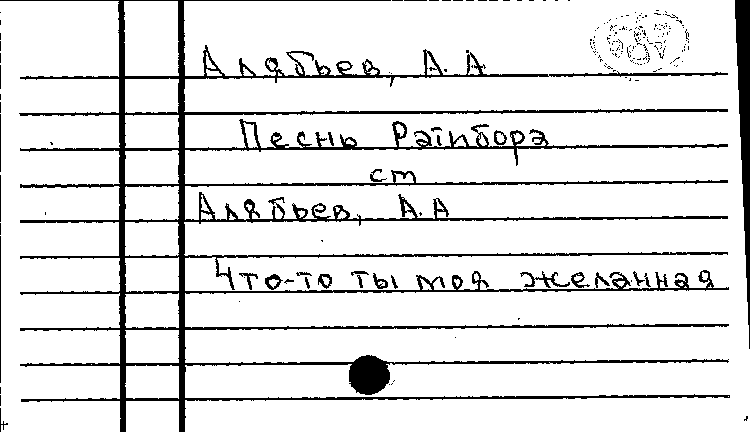 587
Алябьев, А. А
Песнь Ратибора
ст
Алябьев, А. А
Что-то ты моя желанная